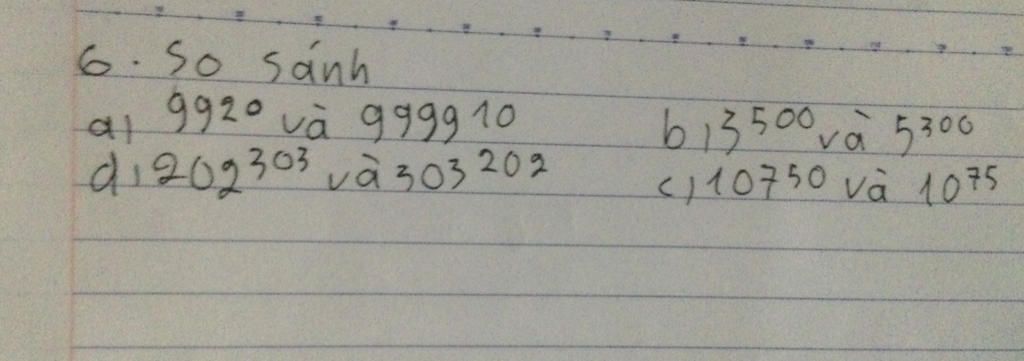 6. So sánh
a, 99²⁰ và 9999¹⁰ b, 3⁵⁰⁰ và 5³⁰⁰
d, 202³⁰³ và 303²⁰² c, 107⁵⁰ và 10⁷⁵